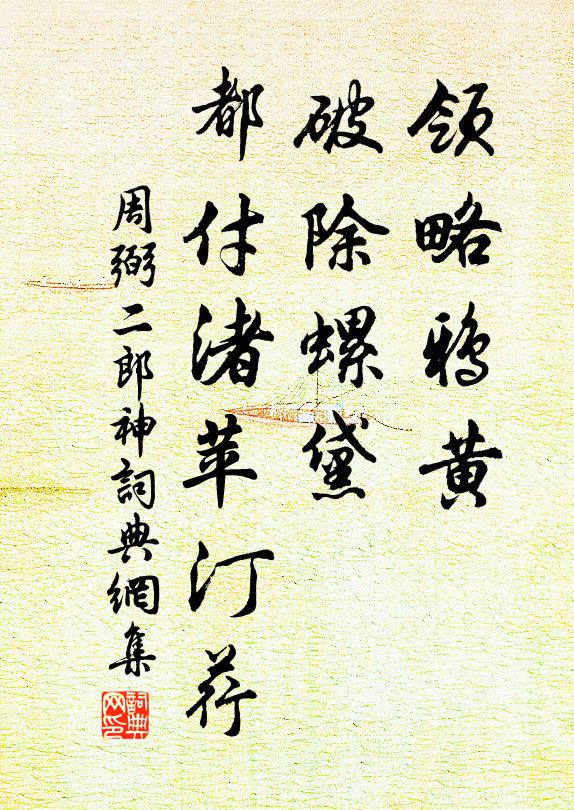 領略鴉黃
破除螺黛
都付渚苹汀荇
周弼二郎神詞典網集
詞典网印